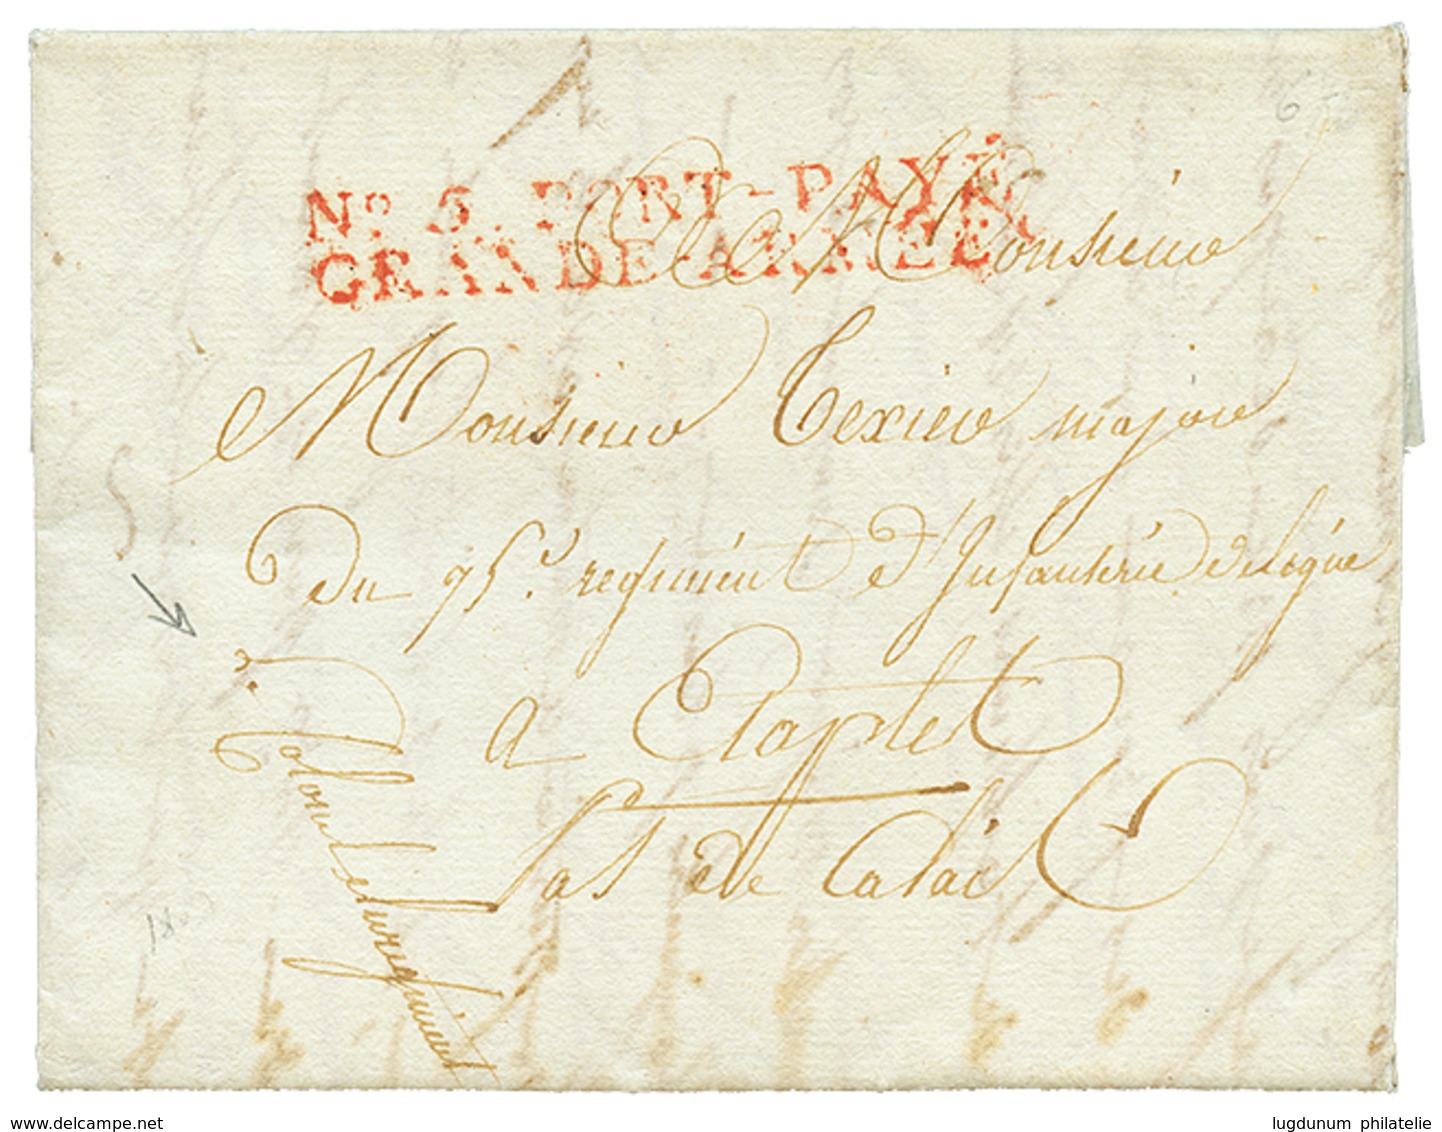 Nº 5. PORT-PAYÉ
GRANDE-ARMÉE
A Monsieur
Monsieur Texier major
du 75e. regiment d'Infanterie de ligne
a Etaples
Pas de Calais
regiment
www.delcampe.net
lugdunum philatelie